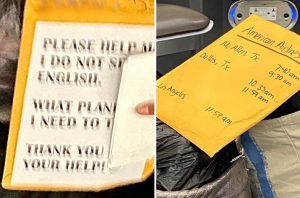 PLEASE HELP M
I DO NOT S
ENGLISH.
WHAT PLAN
I NEED TO T
THANK YOU
YOUR HELP!
American Airlines
Mc Allen, Tx
7:40am
9:30am
Dallas, Tx
10:33am
11:59am
Los Angeles
11:59am